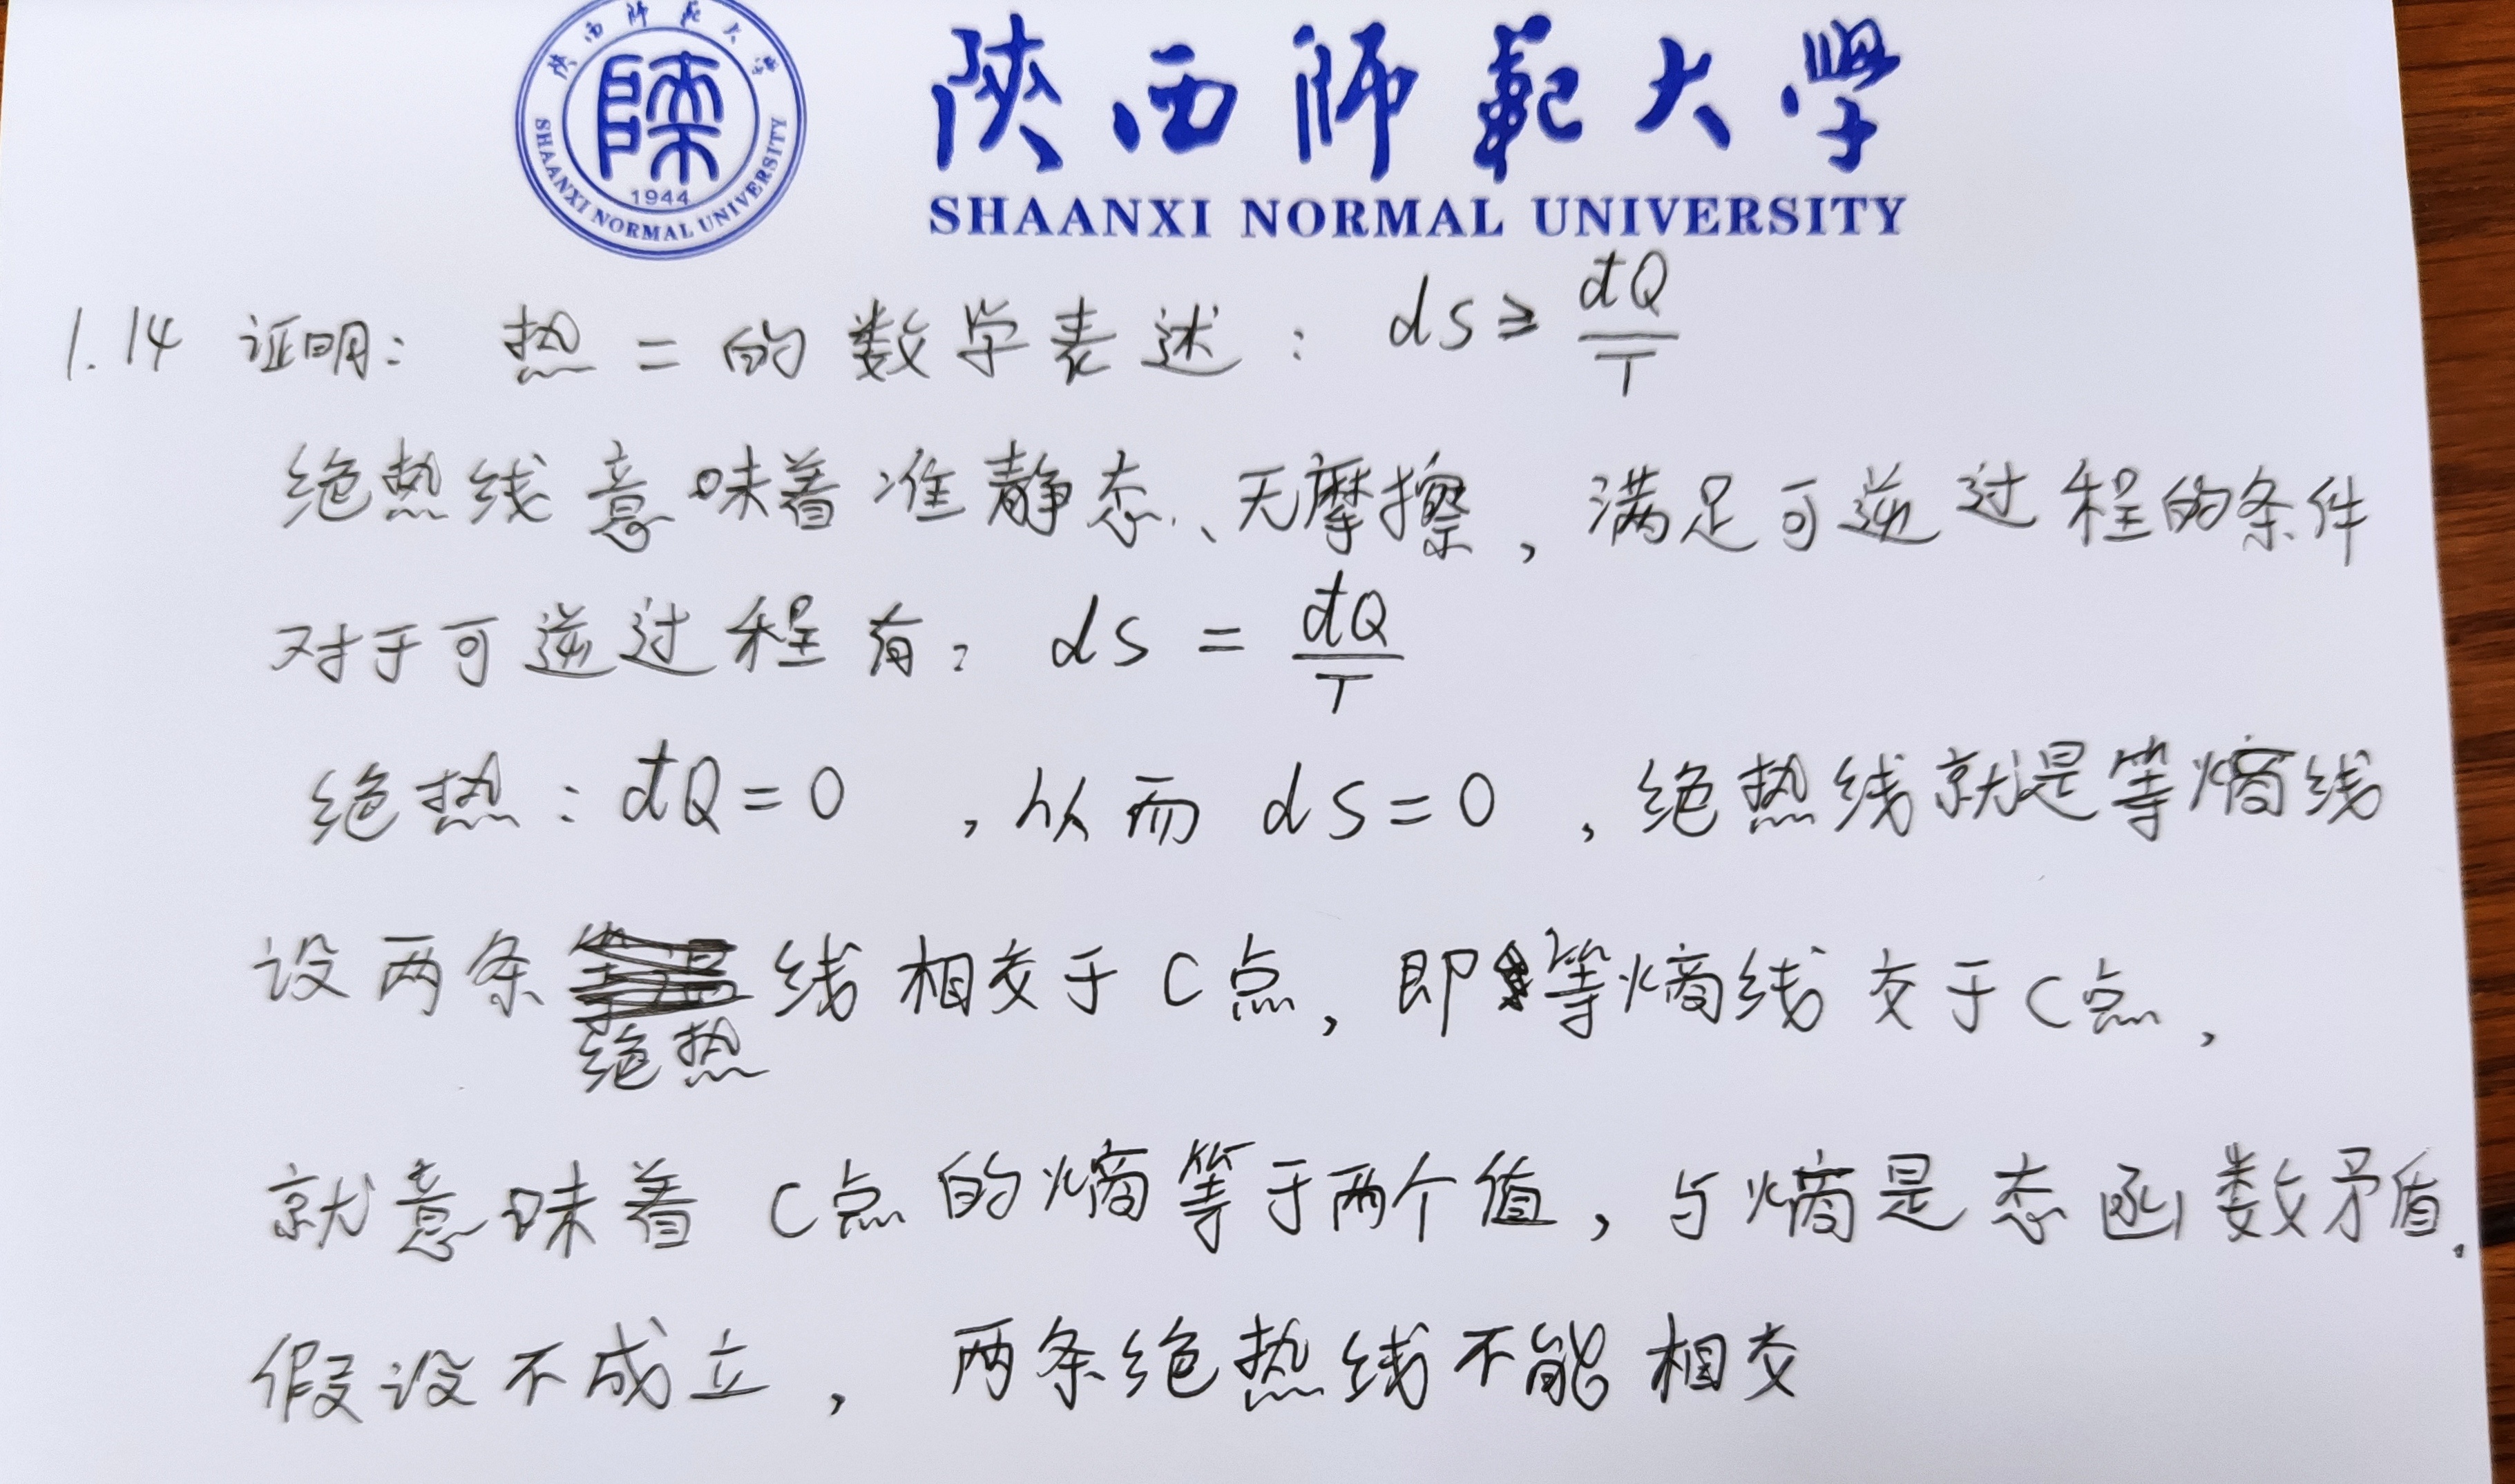 陕西师范大学
SHAANXI NORMAL UNIVERSITY
1944
陕西師範大学
SHAANXI NORMAL UNIVERSITY
1.14 证明: 热二的数学表述: dS ≥ đQ/T
绝热线意味着准静态、无摩擦, 满足可逆过程的条件
对于可逆过程有: dS = đQ/T
绝热: đQ=0 , 从而 dS=0 , 绝热线就是等熵线
设两条绝热线相交于C点, 即等熵线交于C点,
就意味着C点的熵等于两个值, 与熵是态函数矛盾.
假设不成立, 两条绝热线不能相交